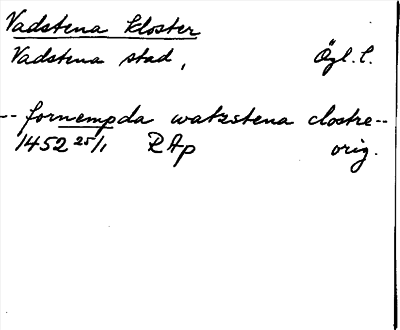 Vadstena kloster
Vadstena stad, Ögl. l.
-- fornempda watzstena clostre --
1452 25/1 RAp orig.